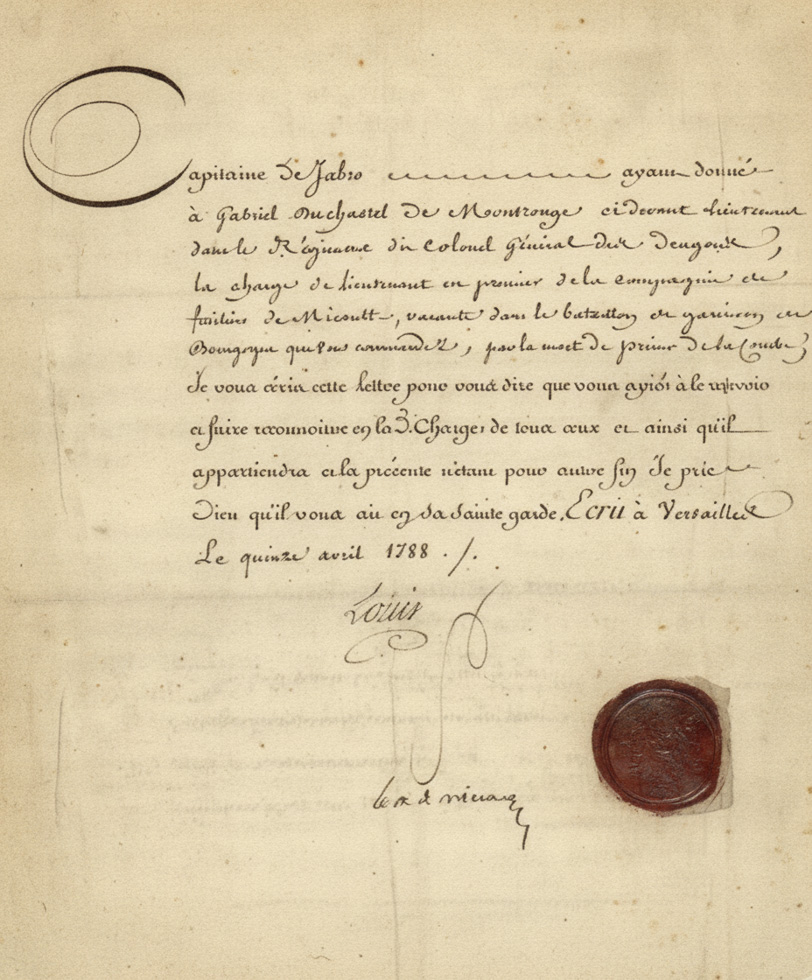 Capitaine De Jabro ayant donné
à Gabriel Duchastel De Montrouge cidevant Lieutenant
dans le Régiment du Colonel Général des Dragons,
la charge de lieutenant en premier de la Compagnie de
fusiliers de Micoult, vacante dans le bataillon de garnison de
Bourgogne que vous commandez, par la mort de
Je vous écris cette lettre pour vous dire que vous ayiés à le recevoir
et faire reconnoitre en la d. Charge, de tous ceux et ainsi qu'il
appartiendra et la présente n'étant pour autre fin Je prie
Dieu qu'il vous ait en sa sainte garde. Ecrit à Versailles
Le quinze avril 1788 ./.
Louis